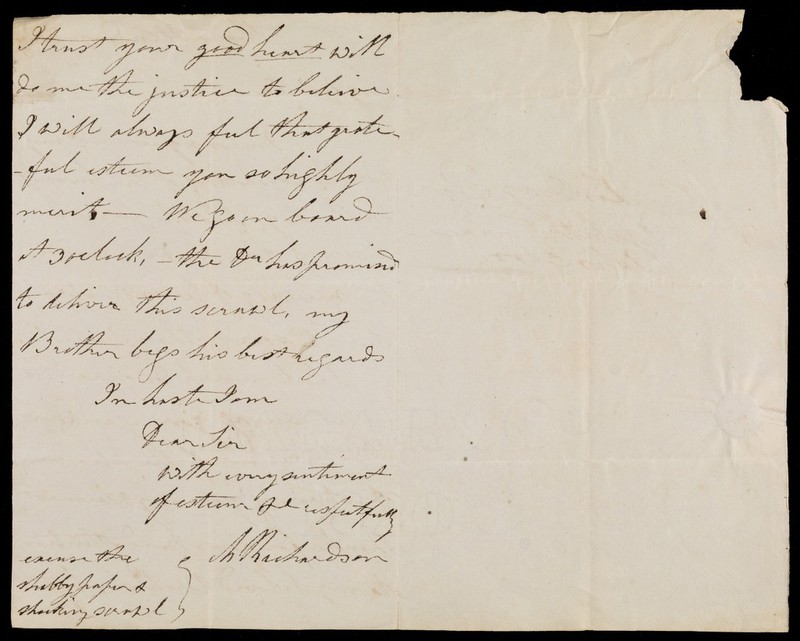 I trust your good heart will
do me the justice to believe
I will always feel that grate-
-ful esteem you so highly
merit, — We go on board
at 3 oclock, — the Dr has promised
to deliver this scrawl, my
Brother begs his best regards
In haste I am
Dear Sir
with every sentiment
of esteem & respectfully
M Richardson
excuse the
shabby paper &
shocking scrawl